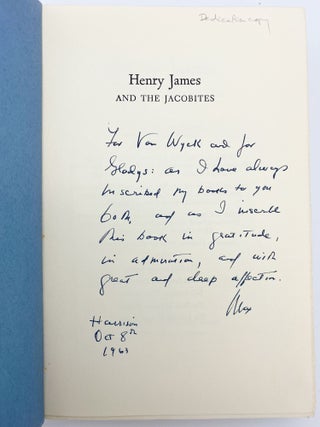 Dedication copy
Henry James
AND THE JACOBITES
For Van Wyck and for
Gladys: as I have always
inscribed my books to you
both, and as I inscribe
this book in gratitude,
in admiration, and with
great and deep affection.
Max
Harrison
Oct 8th
1963